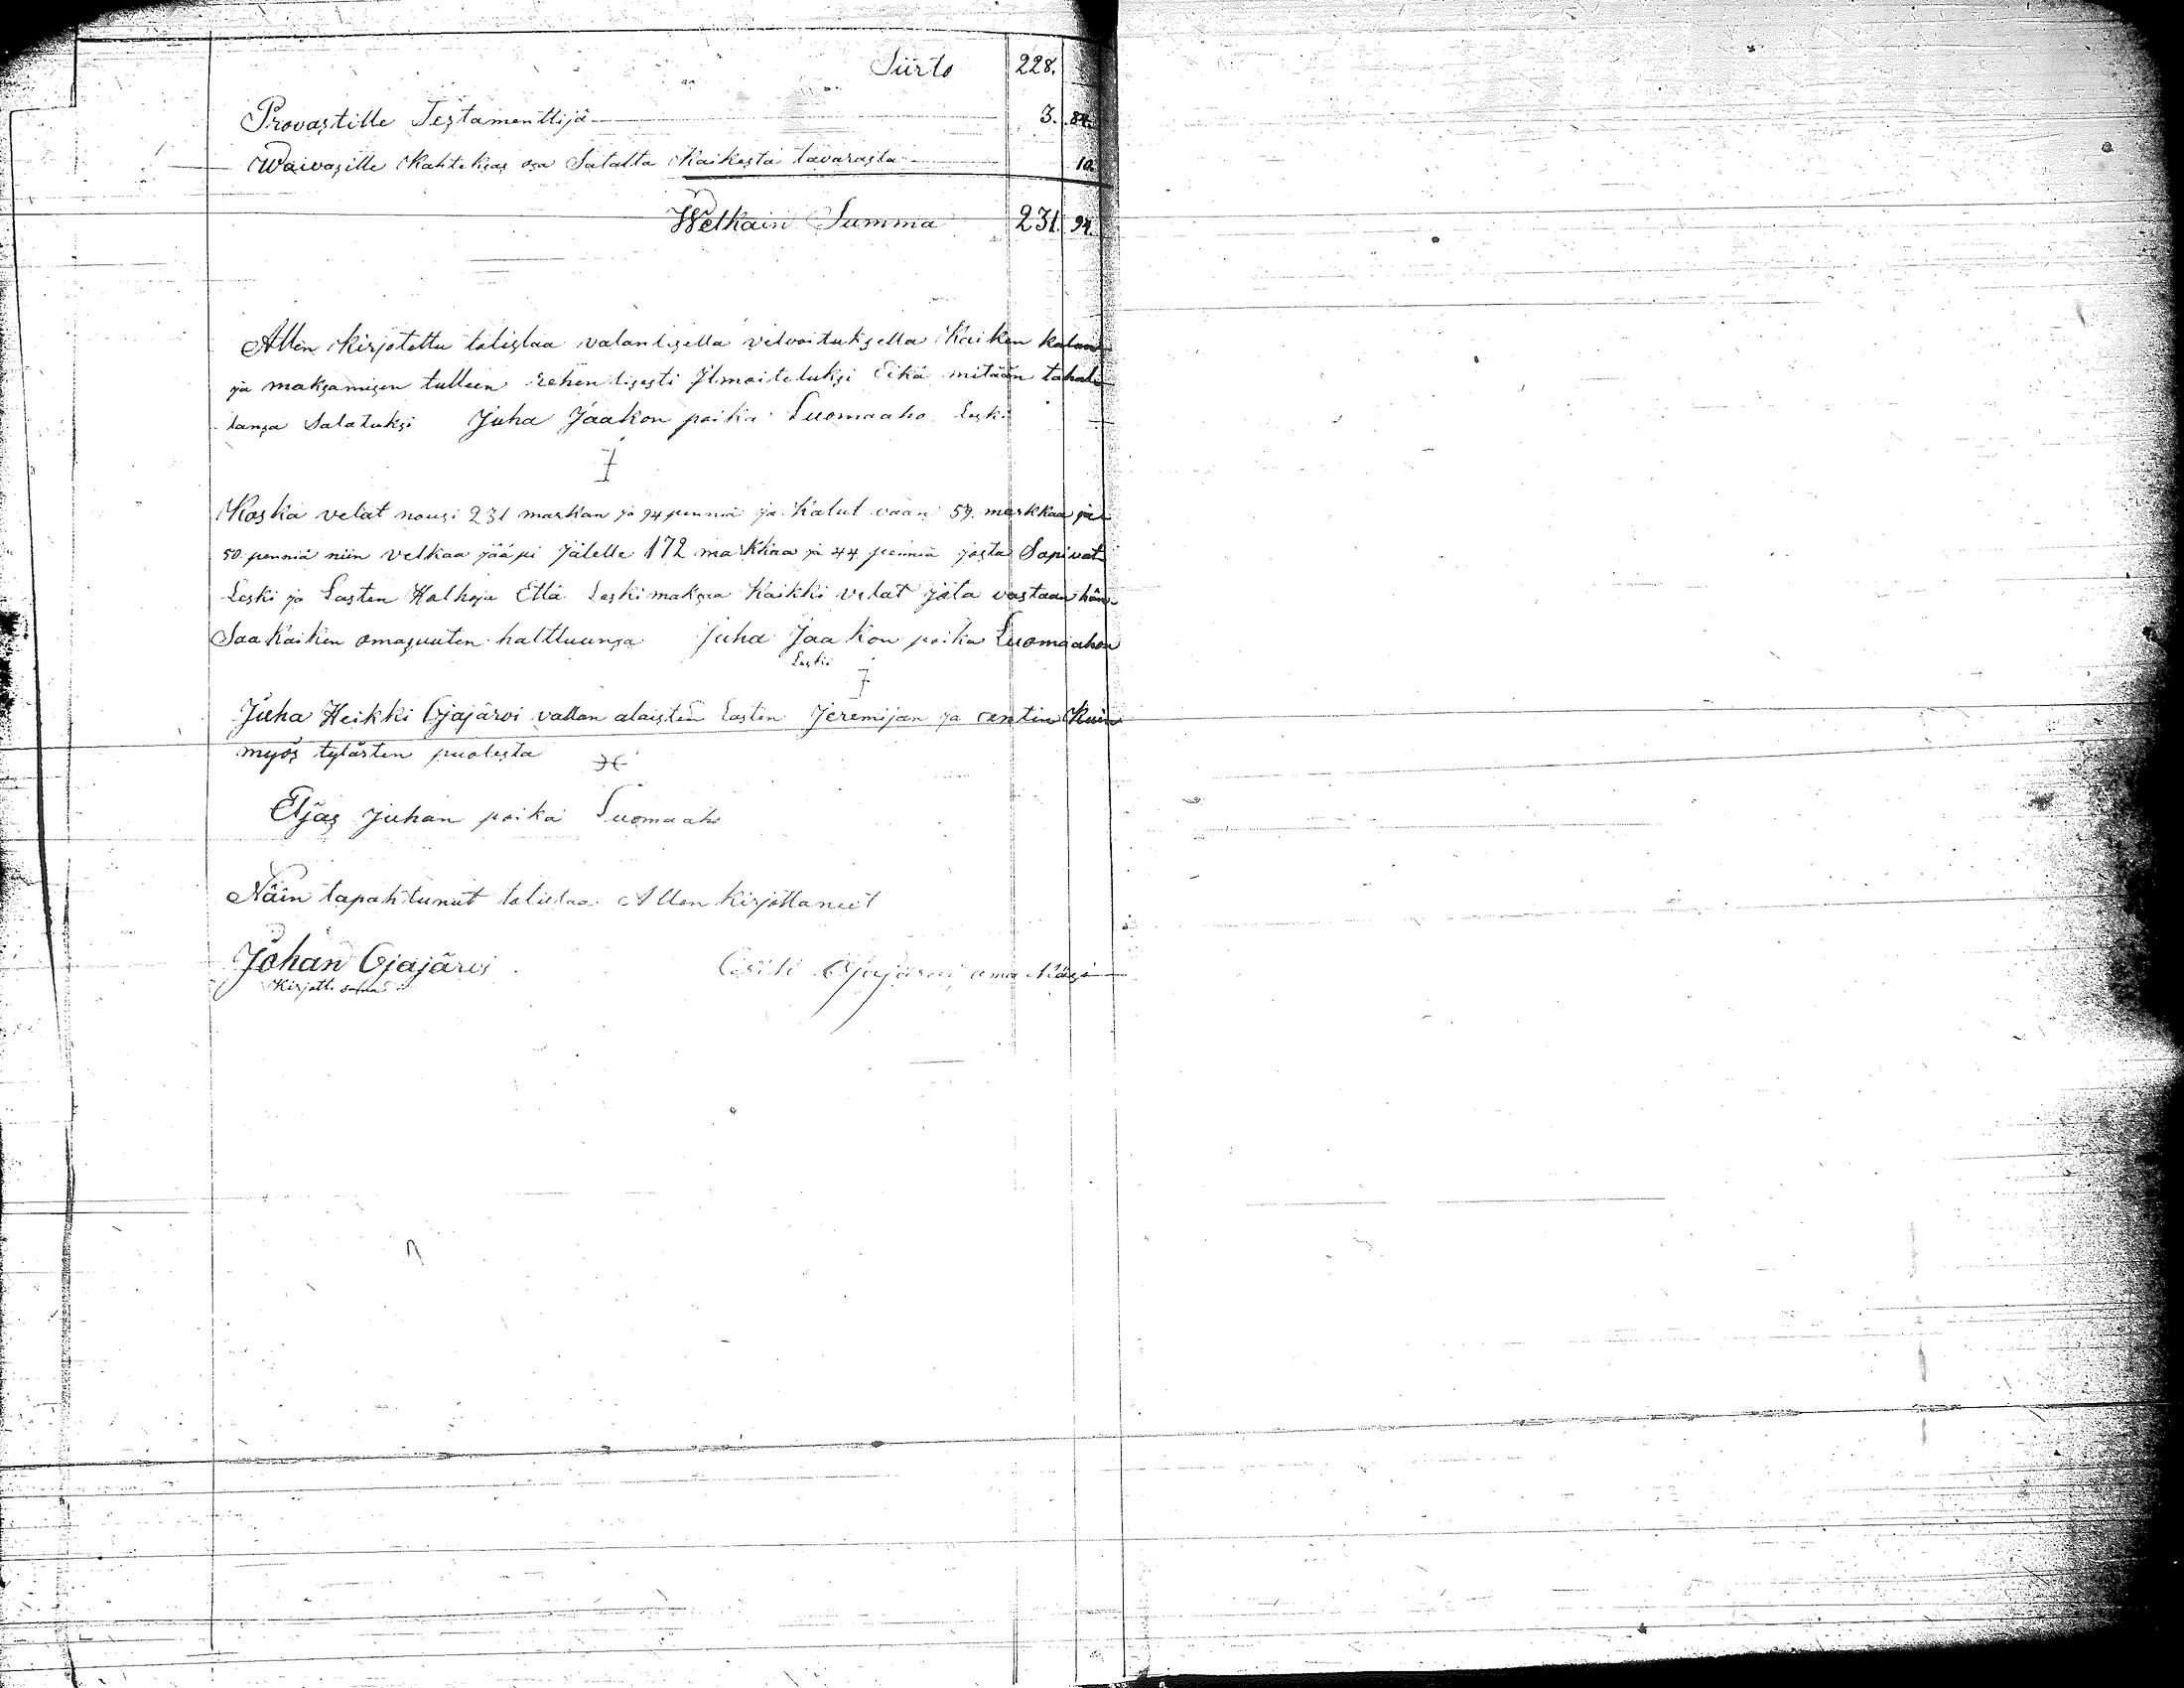 Siirto 228.
Provastille Testamenttijä 3. 84.
Waivasille Kahteksas osa Satalta Kaikesta tavarasta 10.
Welkain Summa 231. 94.
Allen kirjotettu totistaa valantisella velvoituksella Kaiken kalun
ja maksamisen tulleen rehentisesti Ilmoitetuksi Eikä mitään tahali
tansa Salatuksi Juha Jaakon poika Luomaaho Leski
Koska velat nousi 231 markan ja 94 penniä ja Kalut vaan 59. markkaa ja
50. penniä niin velkaa jääpi Jälelle 172 markkaa ja 44 penniä josta Sopivat
Leski ja Lasten Holhoja Että Leski maksaa Kaikki velat jota vastaan hän
Saa Kaiken omasuuten halttuunsa Juha Jaakon poika Luomaahon
Leski
Juha Heikki Ojajärvi vallan alaisten Lasten Jeremijan ja antin Kuin
myös tytärten puolesta
Eljas Juhan poika Luomaaho
Näin tapahtunut totistaa Allen kirjottaneet
Johan Ojajärvi Ojajärvi oma Käsi
Kirjotti